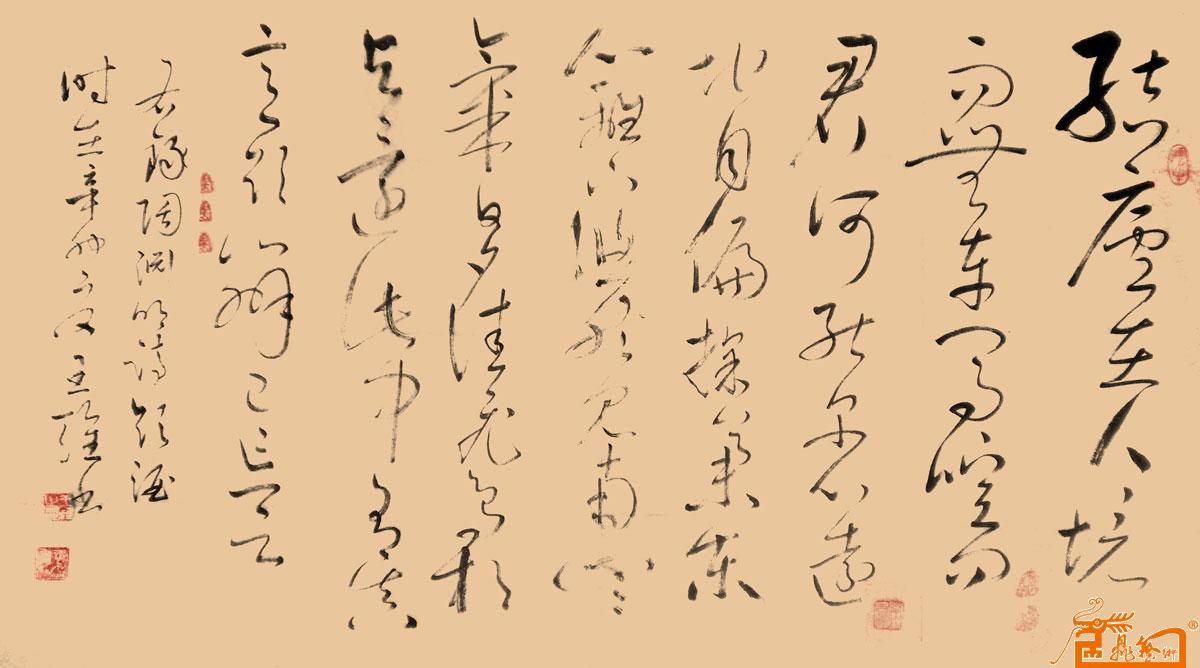 結廬在人境
而無車馬喧問
君何能尔心遠
地自偏採菊東
籬下悠然見南山〻
氣日夕佳飛鳥相
与還此中有真
意欲辨已忘言
右錄陶渊明詩飲酒
时在辛卯之夏王书